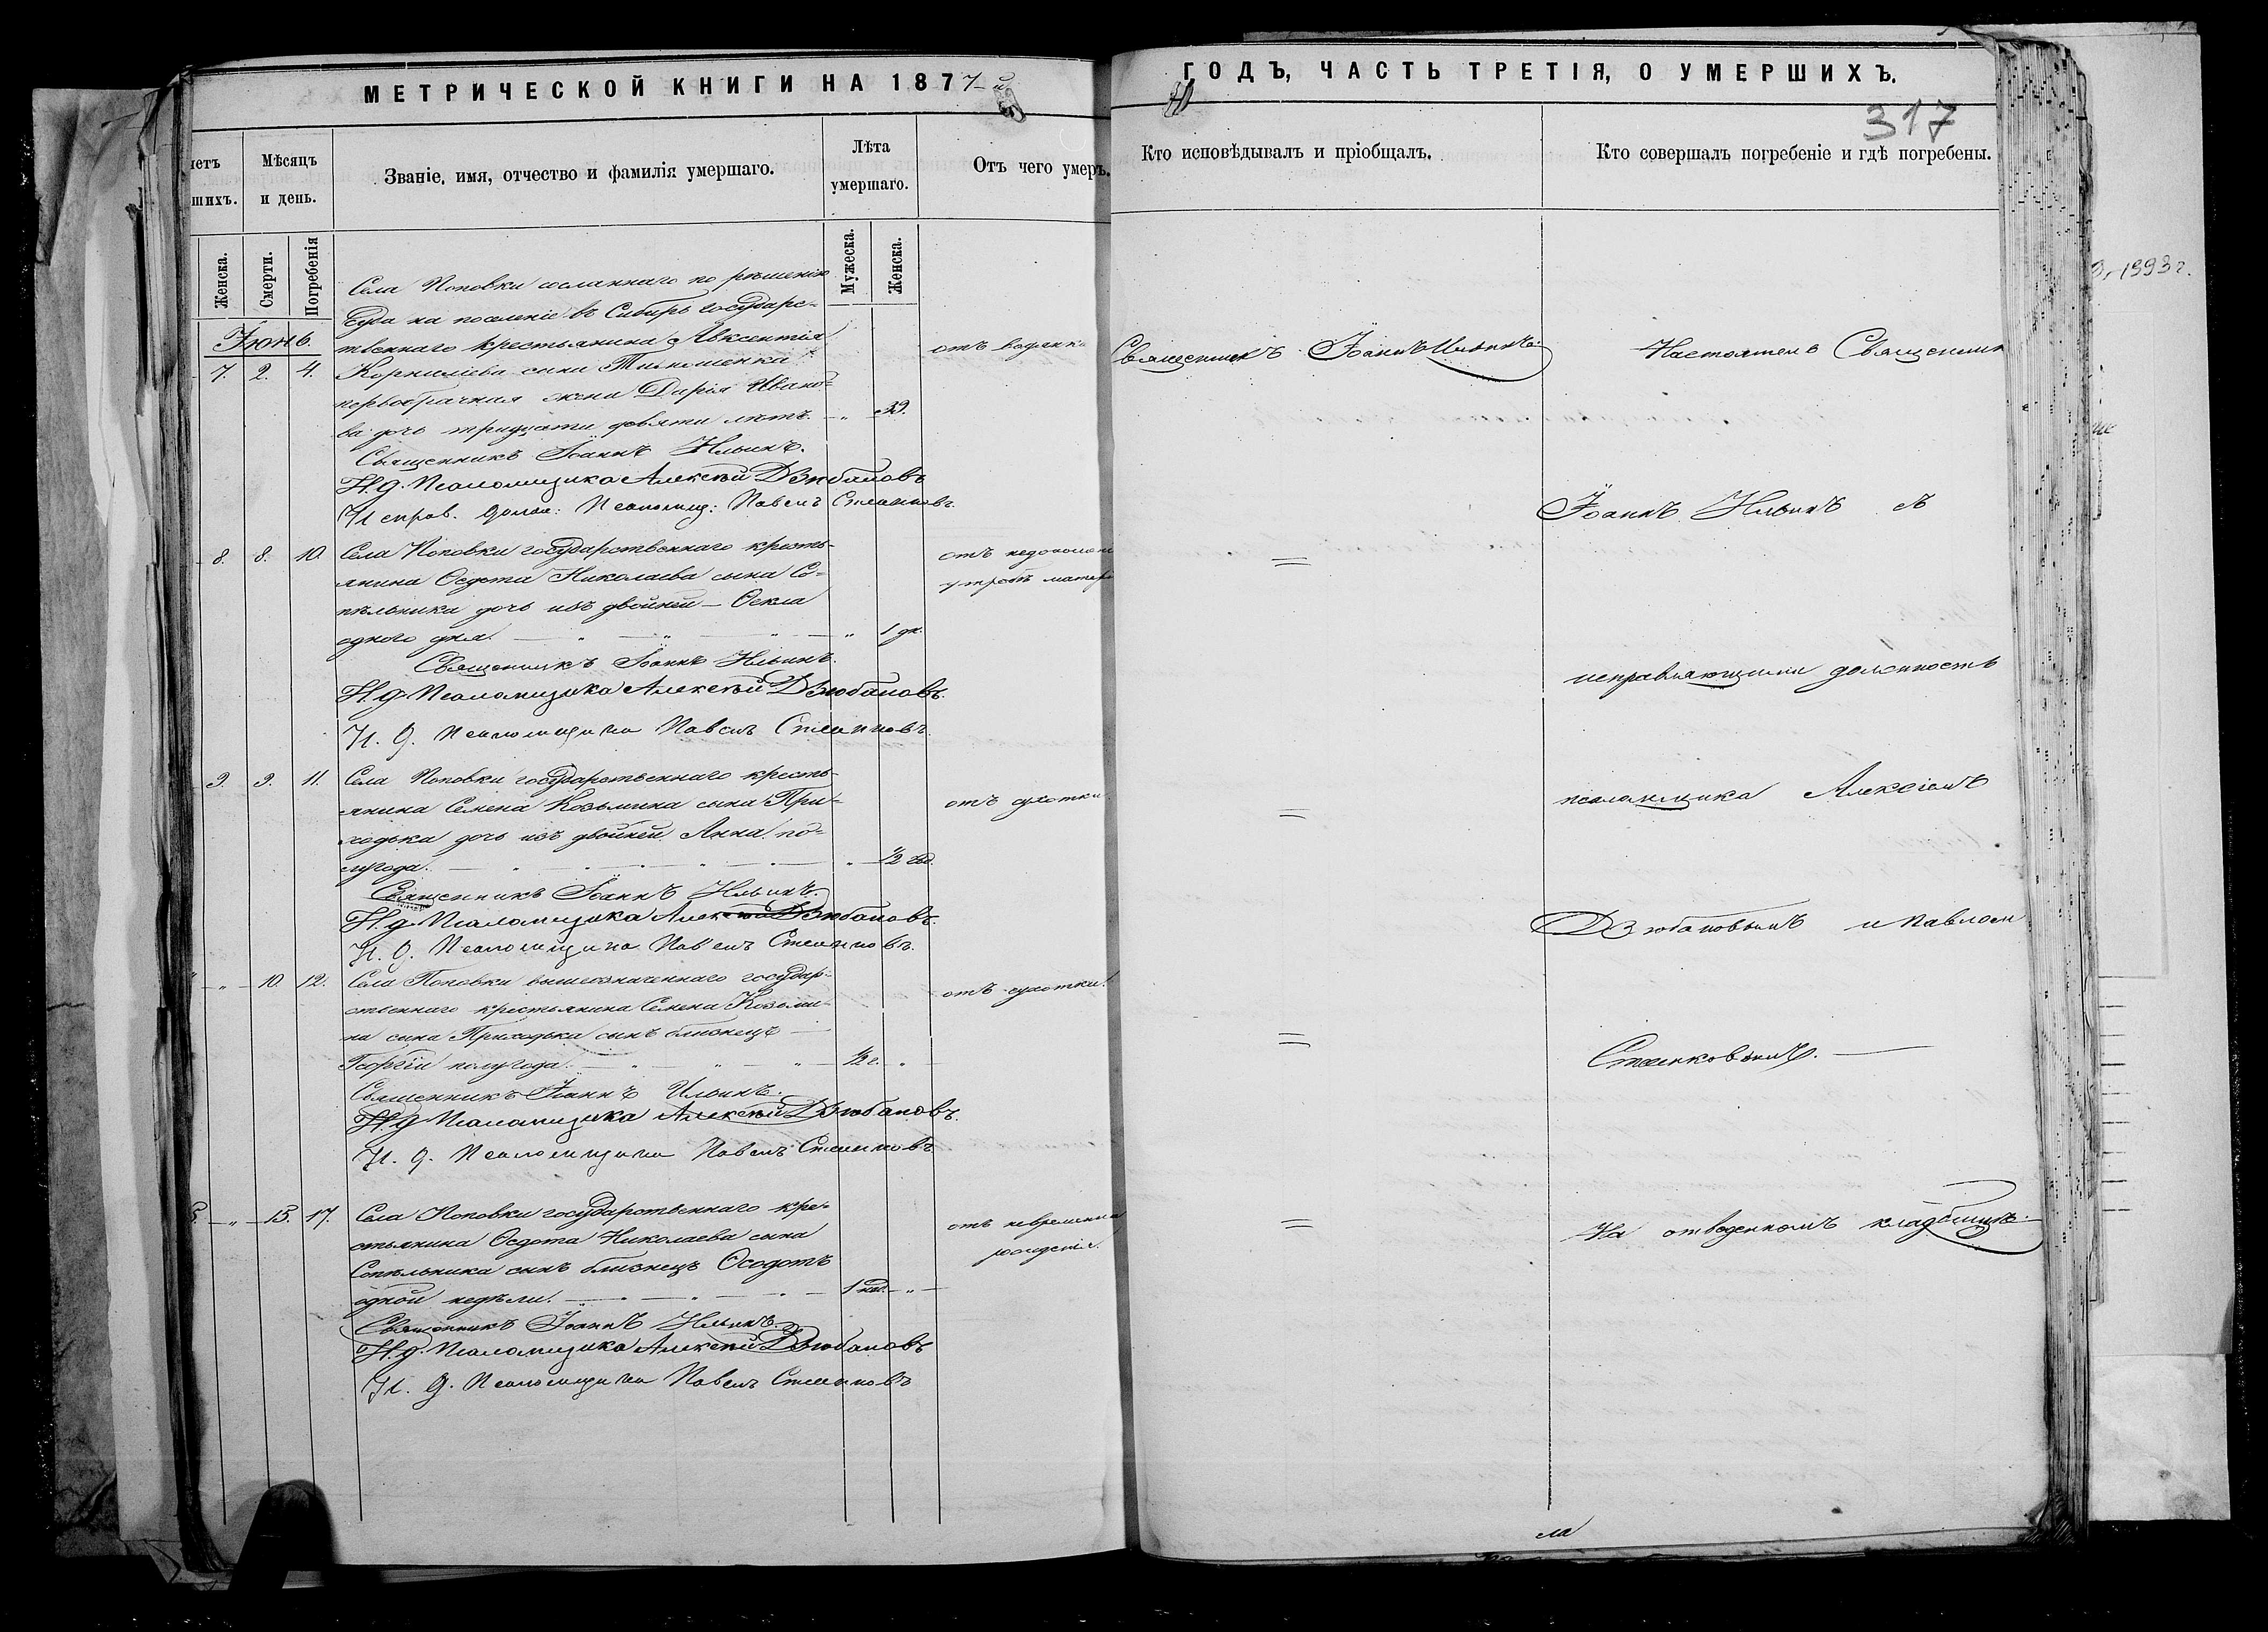 МЕТРИЧЕСКОЙ КНИГИ НА 1877-й
ГОДЪ, ЧАСТЬ ТРЕТІЯ, О УМЕРШИХЪ.
317
четъ
шихъ.
Мѣсяцъ
и день.
Званіе, имя, отчество и фамилія умершаго.
Лѣта
умершаго.
Отъ чего умеръ.
Кто исповѣдывалъ и пріобщалъ.
Кто совершалъ погребеніе и гдѣ погребены.
Женска.
Смерти.
Погребенія
Мужеска.
Женска.
Іюнь.
7. 2. 4.
Села Поповки сосланнаго по рѣшенію
суда на поселеніе въ Сибирь государс-
твеннаго крестьянина Авксентія
Корниліева сына
первобрачная жена Дарія Ивано-
ва дочь тридцати девяти лѣтъ. — „ 39.
отъ водянки
Священникъ Іоаннъ Ильинъ.
Настоятель Священник
Священникъ Іоаннъ Ильинъ.
И. д. Псаломщика Алексѣй Дзюбановъ
Исправ. долж: Псаломщ: Павелъ
Іоаннъ Ильинъ съ
8. 8. 10.
Села Поповки государственнаго кресть-
янина Ѳедота Николаева сына Со-
пѣльника дочь изъ двойней — Ѳекла
одного дня. — „ — „ — „ — „ 1 дн.
отъ
утробѣ матер
=
Священникъ Іоаннъ Ильинъ.
И. д. Псаломщика Алексѣй Дзюбановъ.
И. д. Псаломщика Павелъ
исправляющими должность
9. 9. 11.
Села Поповки государственнаго кресть-
янина Семена Козьмина сына При-
ходька дочь изъ двойней Анна по-
лугода. — „ — „ — „ — „ — ½ год.
отъ сухотки
=
псаломщика Алексіемъ
Священникъ Іоаннъ Ильинъ.
И. д. Псаломщика Алексѣй Дзюбановъ.
И. д. Псаломщика Павелъ
Дзюбановымъ и Павлом
— „ — 10. 12.
Села Поповки вышеозначеннаго государ-
ственнаго крестьянина Семена Козьми-
на сына Приходька сынъ близнецъ —
Георгій полугода. — „ — „ — „ — ½ г. „ —
отъ сухотки.
=
Священникъ Іоаннъ Ильинъ.
И. д. Псаломщика Алексѣй Дзюбановъ.
И. д. Псаломщика Павелъ
— „ — 15. 17.
Села Поповки государственнаго кре-
стьянина Ѳедота Николаева сына
Сопѣльника сынъ близнецъ Ѳеодотъ
одной недѣли. — „ — „ — „ — 1 нед. — „ —
отъ
рожденія.
=
На отведенномъ кладбищѣ.
Священникъ Іоаннъ Ильинъ.
И. д. Псаломщика Алексѣй Дзюбановъ
И. д. Псаломщика Павелъ
1993 г.
ла